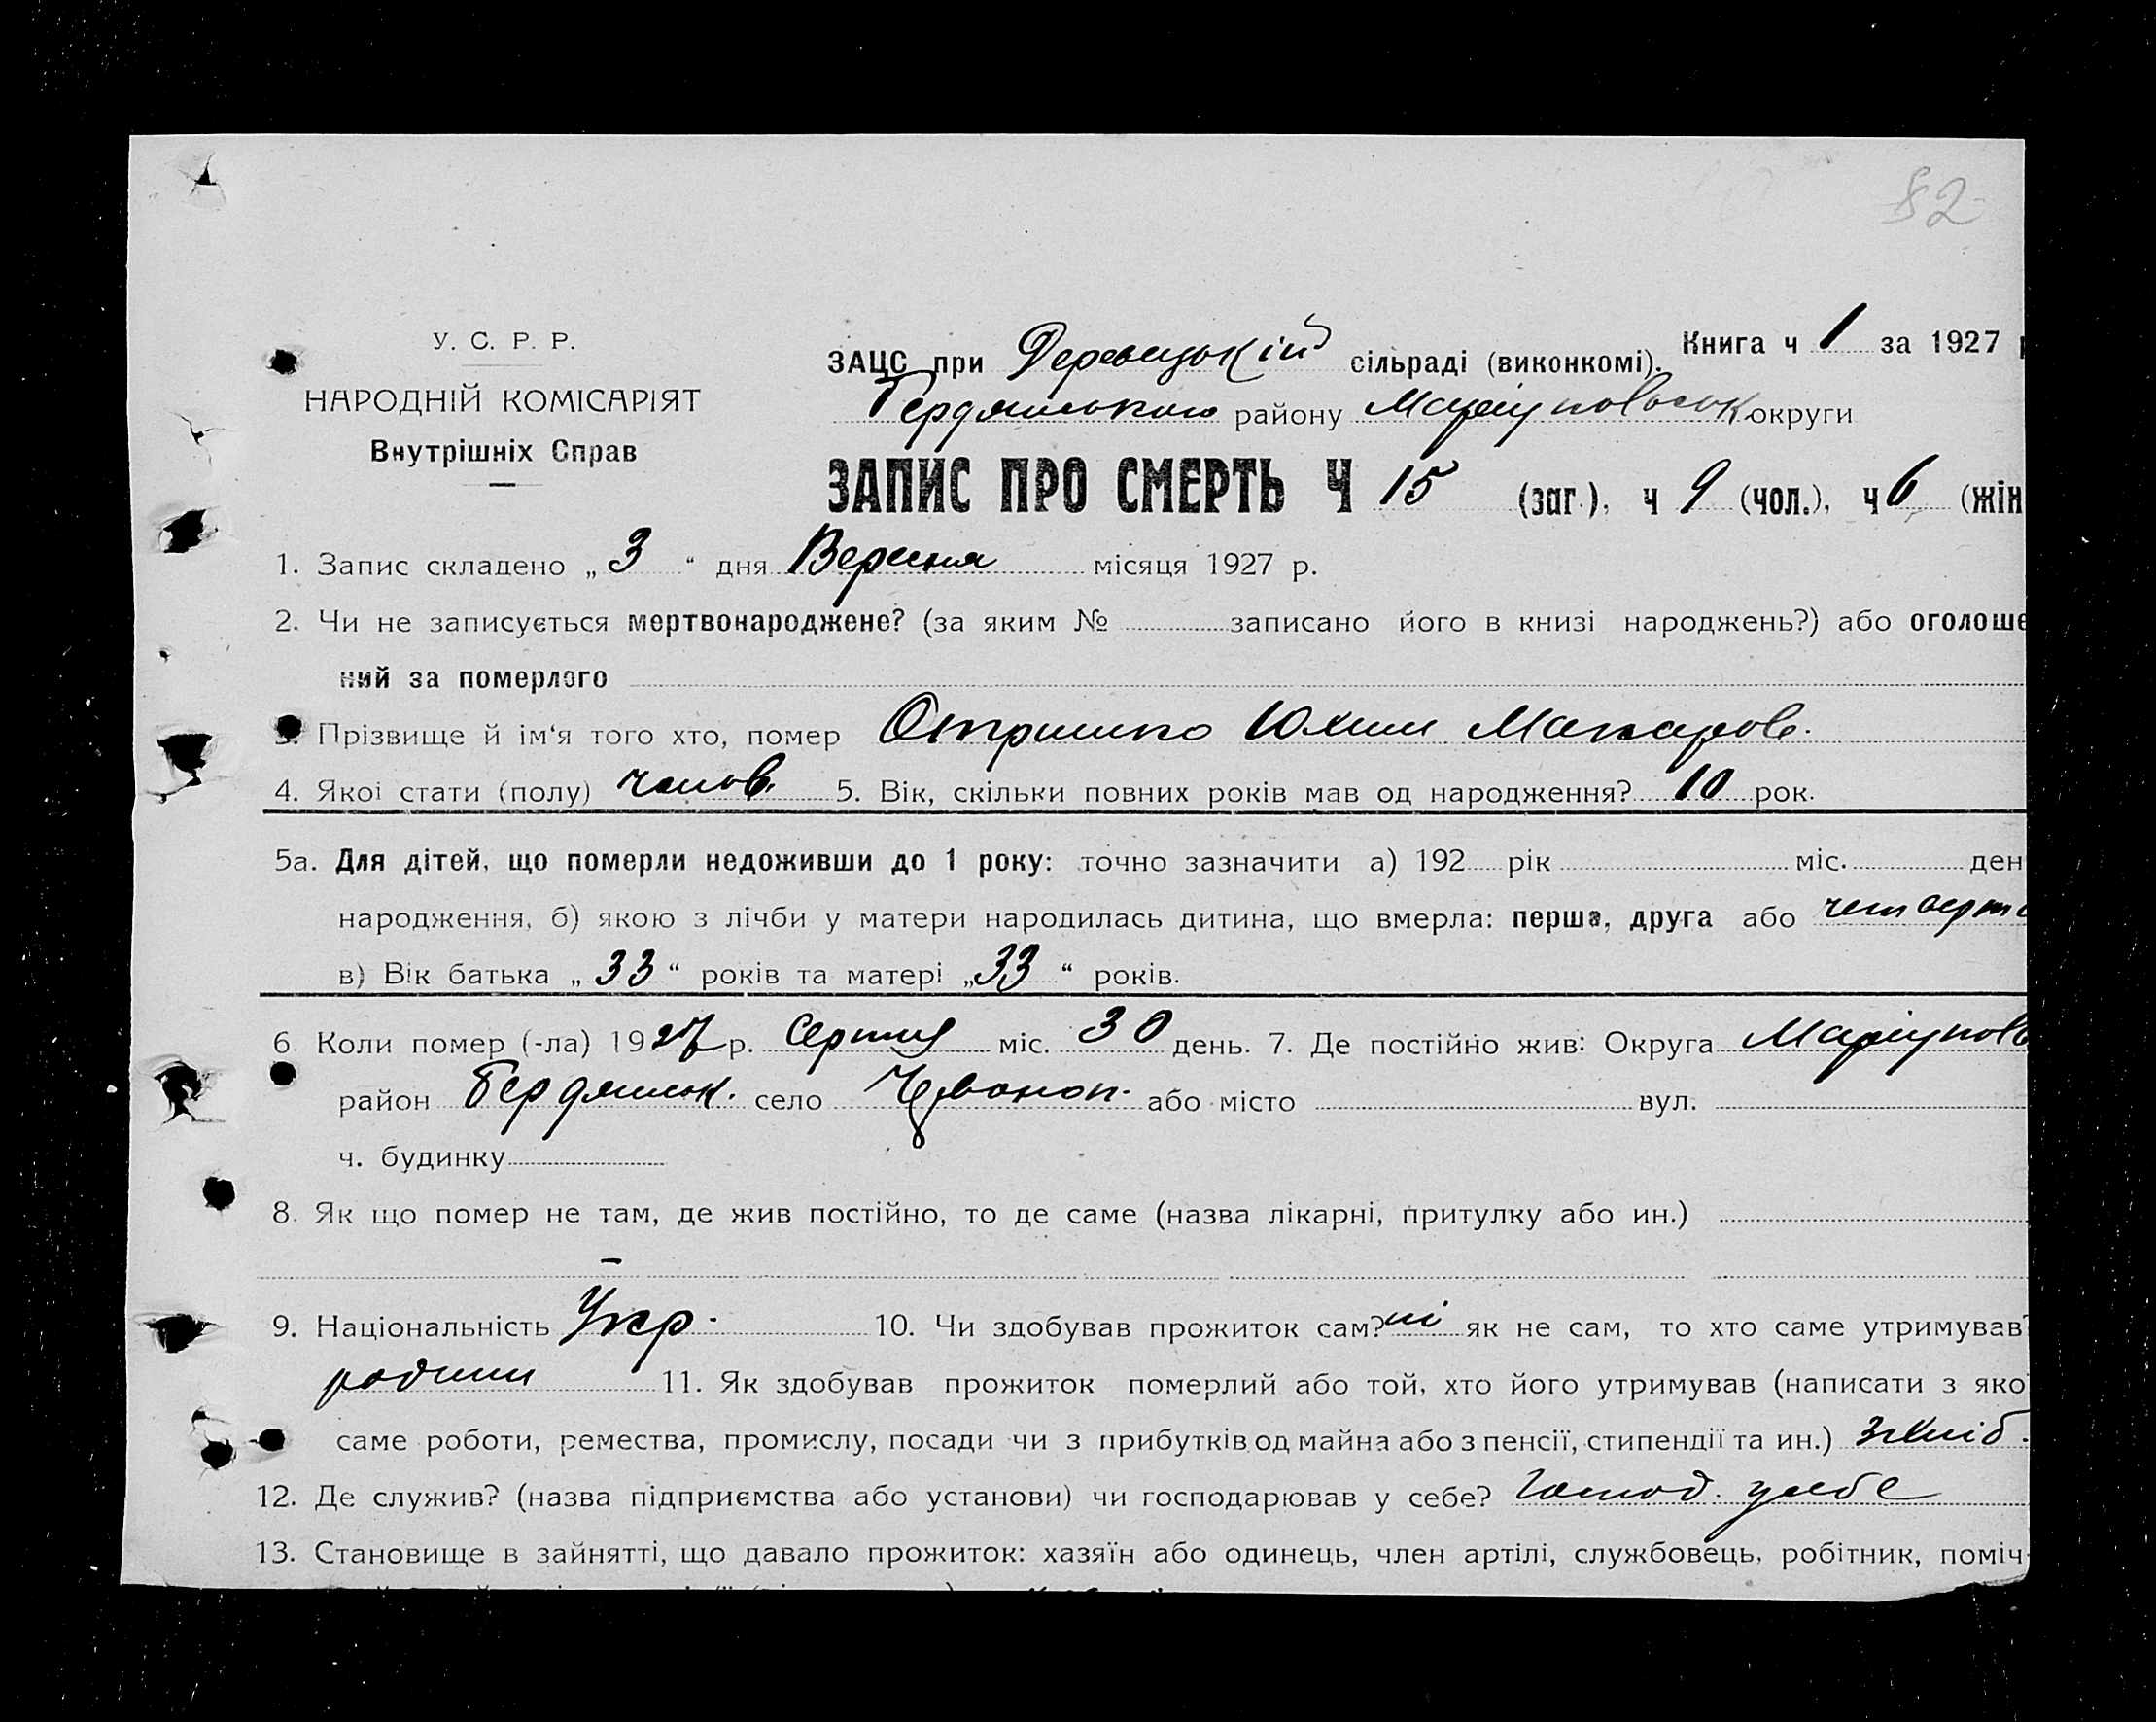 82
У. С. Р. Р.
НАРОДНІЙ КОМІСАРІЯТ
Внутрішніх Справ
Книга ч 1 за 1927
ЗАЦС при Деревецькій сільраді (виконкомі).
Бердянського району Маріупольськ округи
ЗАПИС ПРО СМЕРТЬ Ч 15 (заг.), ч 9 (чол.), ч 6 (жін
1. Запис складено „ 3 “ дня Вересня місяця 1927 р.
2. Чи не записується мертвонароджене? (за яким № записано його в книзі народжень?) або оголоше
ний за померлого
3. Прізвище й ім‘я того хто, помер Отришко Юхим Макаров.
4. Якоі стати (полу) чолов. 5. Вік, скільки повних років мав од народження? 10 рок.
5а. Для дітей, що померли недоживши до 1 року: точно зазначити а) 192 рік міс. ден
народження, б) якою з лічби у матери народилась дитина, що вмерла: перша, друга або четверта
в) Вік батька „ 33 “ років та матері „ 33 “ років.
6. Коли помер (-ла) 1927 р. Серпня міс. 30 день. 7. Де постійно жив: Округа Маріуполь
район Бердянськ. село Червоноп. або місто вул.
ч. будинку
8. Як що помер не там, де жив постійно, то де саме (назва лікарні, притулку або ин.)
–
9. Національність Укр. 10. Чи здобував прожиток сам? ні як не сам, то хто саме утримував?
родини 11. Як здобував прожиток померлий або той, хто його утримував (написати з яко
саме роботи, ремества, промислу, посади чи з прибутків од майна або з пенсії, стипендії та ин.) з хліб.
12. Де служив? (назва підприємства або установи) чи господарював у себе? Господ. у себе
13. Становище в зайнятті, що давало прожиток: хазяїн або одинець, член артілі, службовець, робітник, поміч-